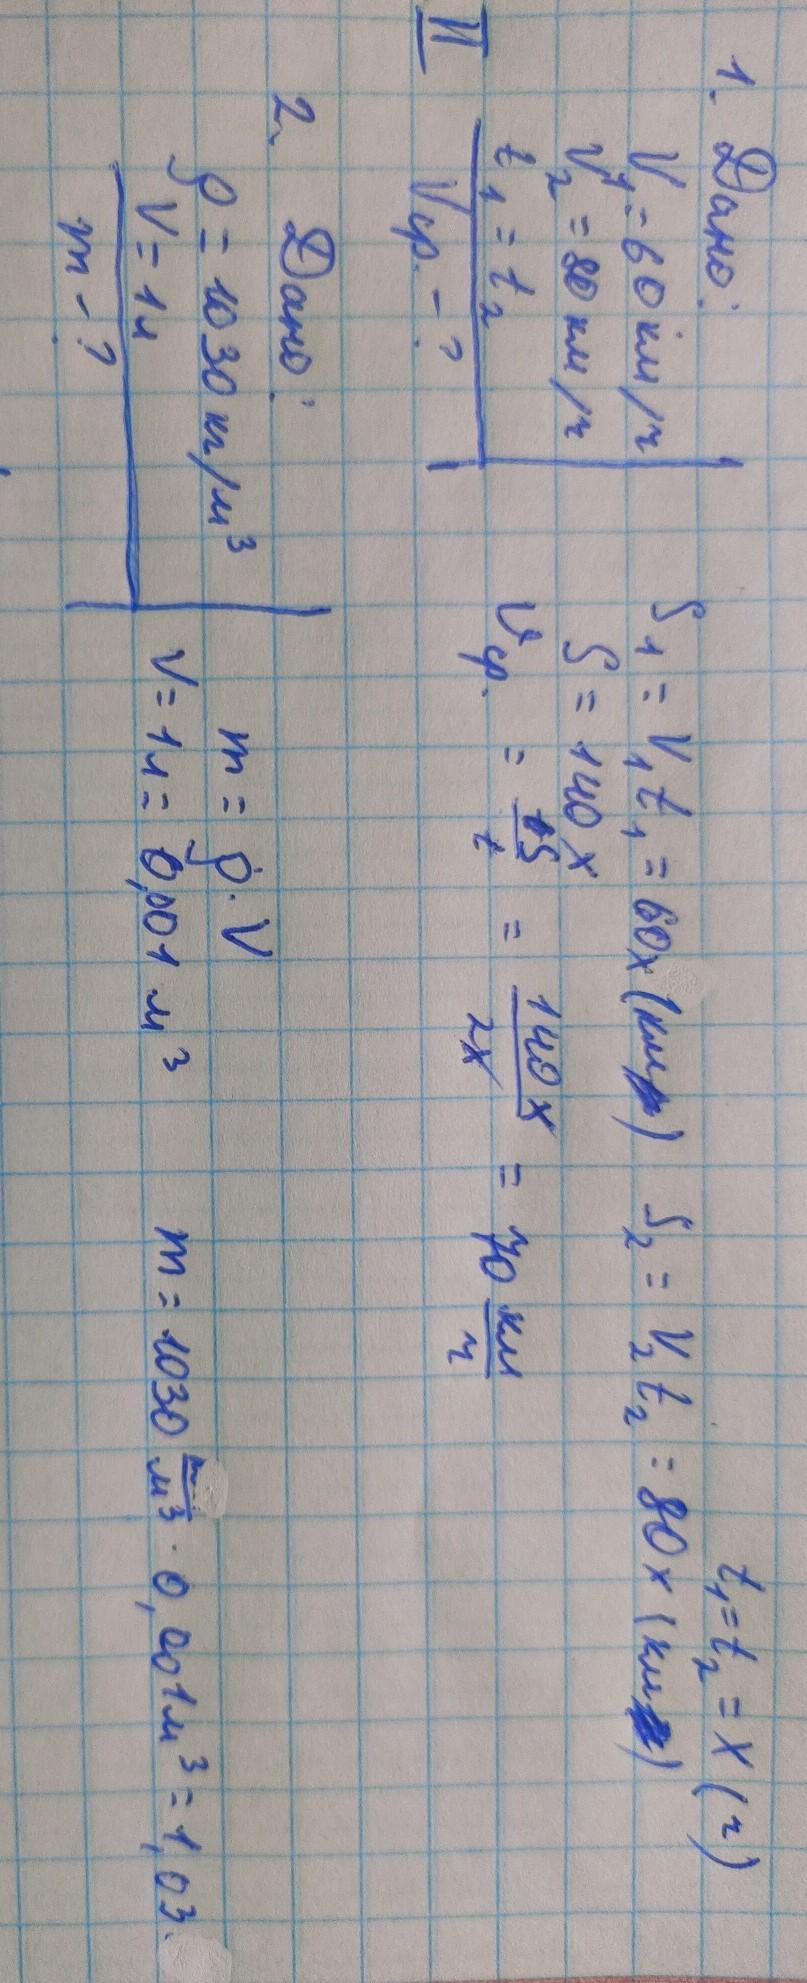 II
1. Дано:
V₁ = 60 км/ч
V₂ = 80 км/ч
t₁ = t₂
Vср. - ?
t₁ = t₂ = x (ч)
S₁ = V₁t₁ = 60x (км) S₂ = V₂t₂ = 80x (км)
S = 140x
Vср. = S/t = 140x/2x = 70 км/ч
2. Дано:
ρ = 1030 кг/м³
V = 1л
m - ?
m = ρ · V
V = 1л = 0,001 м³ m = 1030 /м³ · 0,001м³ = 1,03